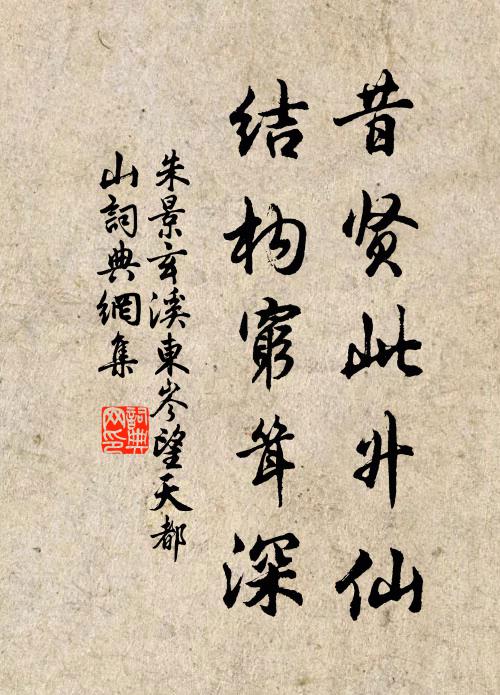 昔贤此升仙
结构窮耸深
朱景玄溪東岑望天都
山詞典網集
詞典网印